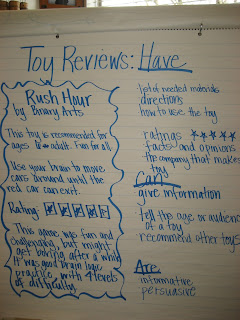 Toy Reviews: Have
Rush Hour
by Binary Arts
This toy is recommended for
ages to adult. Fun for all.
Use your brain to move
cars around until the
red car can exit.
Rating
This game was fun and
challenging, but might
get boring after a while.
It was good brain logic
practice with 4 levels
of difficulty.
list of needed materials
directions
how to use the toy
ratings ☆☆☆☆☆
facts and opinions
the company that makes
toy
Can
give information
tell the age or audience
of a toy
recommend other toys
Are
informative
persuasive